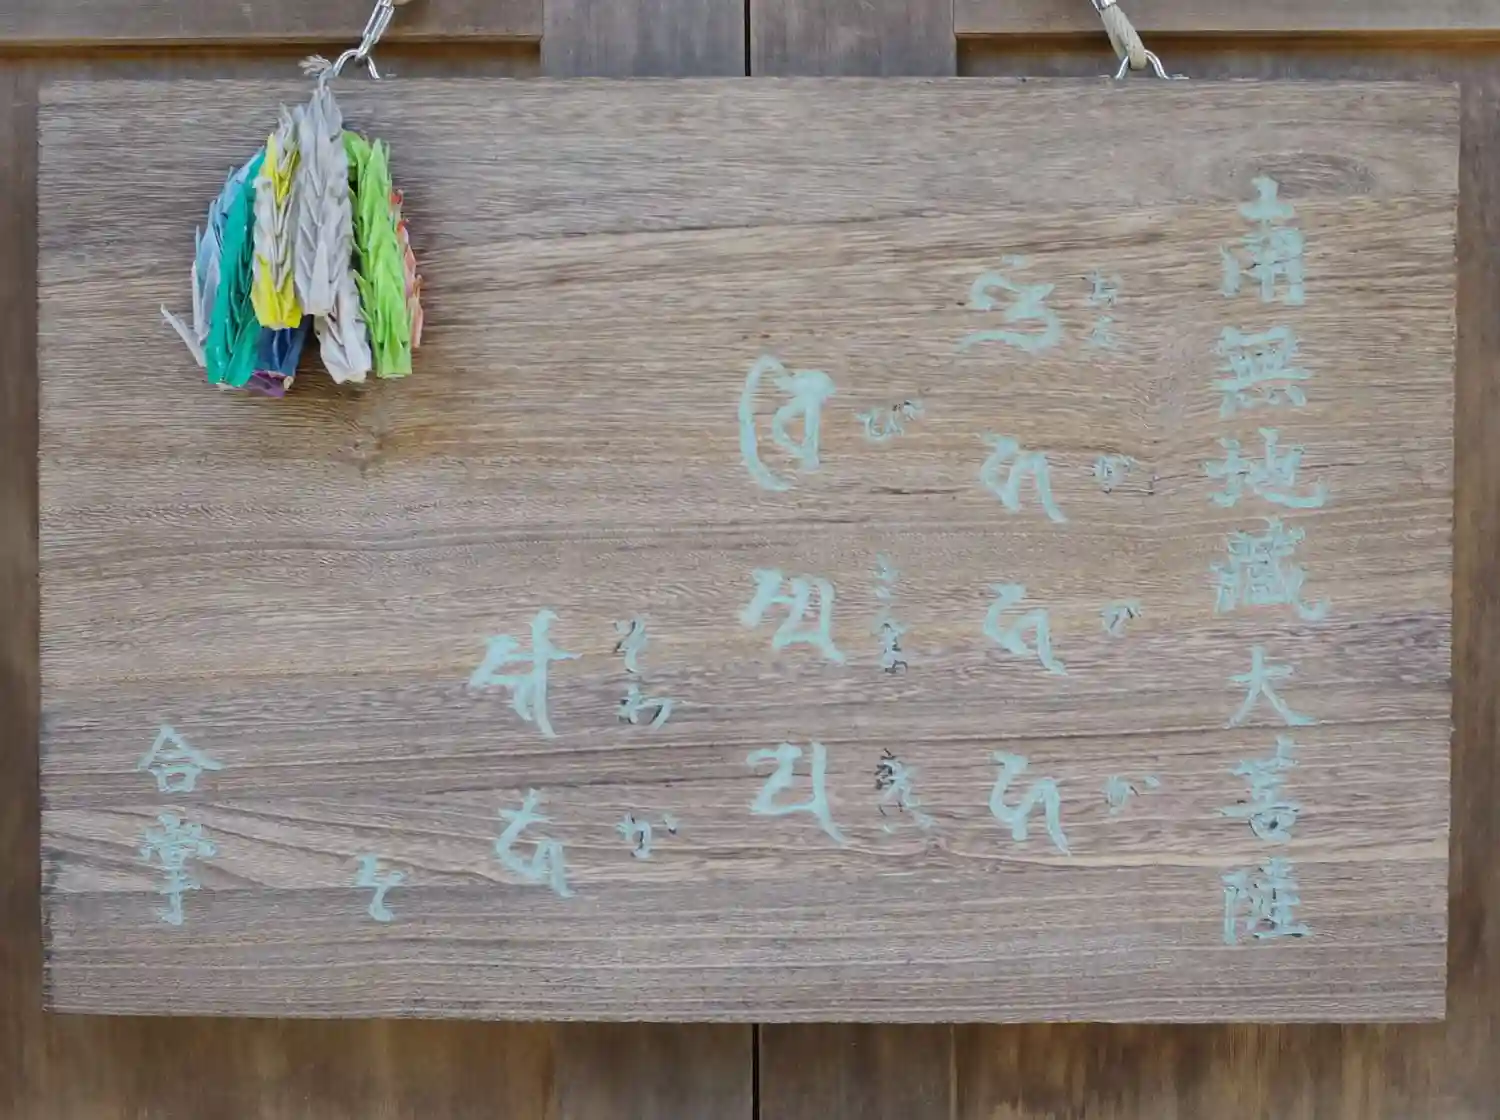 南無地藏大菩薩
おん か か か
𑖌𑖼 𑖮 𑖮 𑖮
び さんま えい
𑖪𑖰 𑖭𑖿𑖦 𑖧𑖸
そわ か
𑖭𑖿𑖪𑖯 𑖮𑖯
合掌